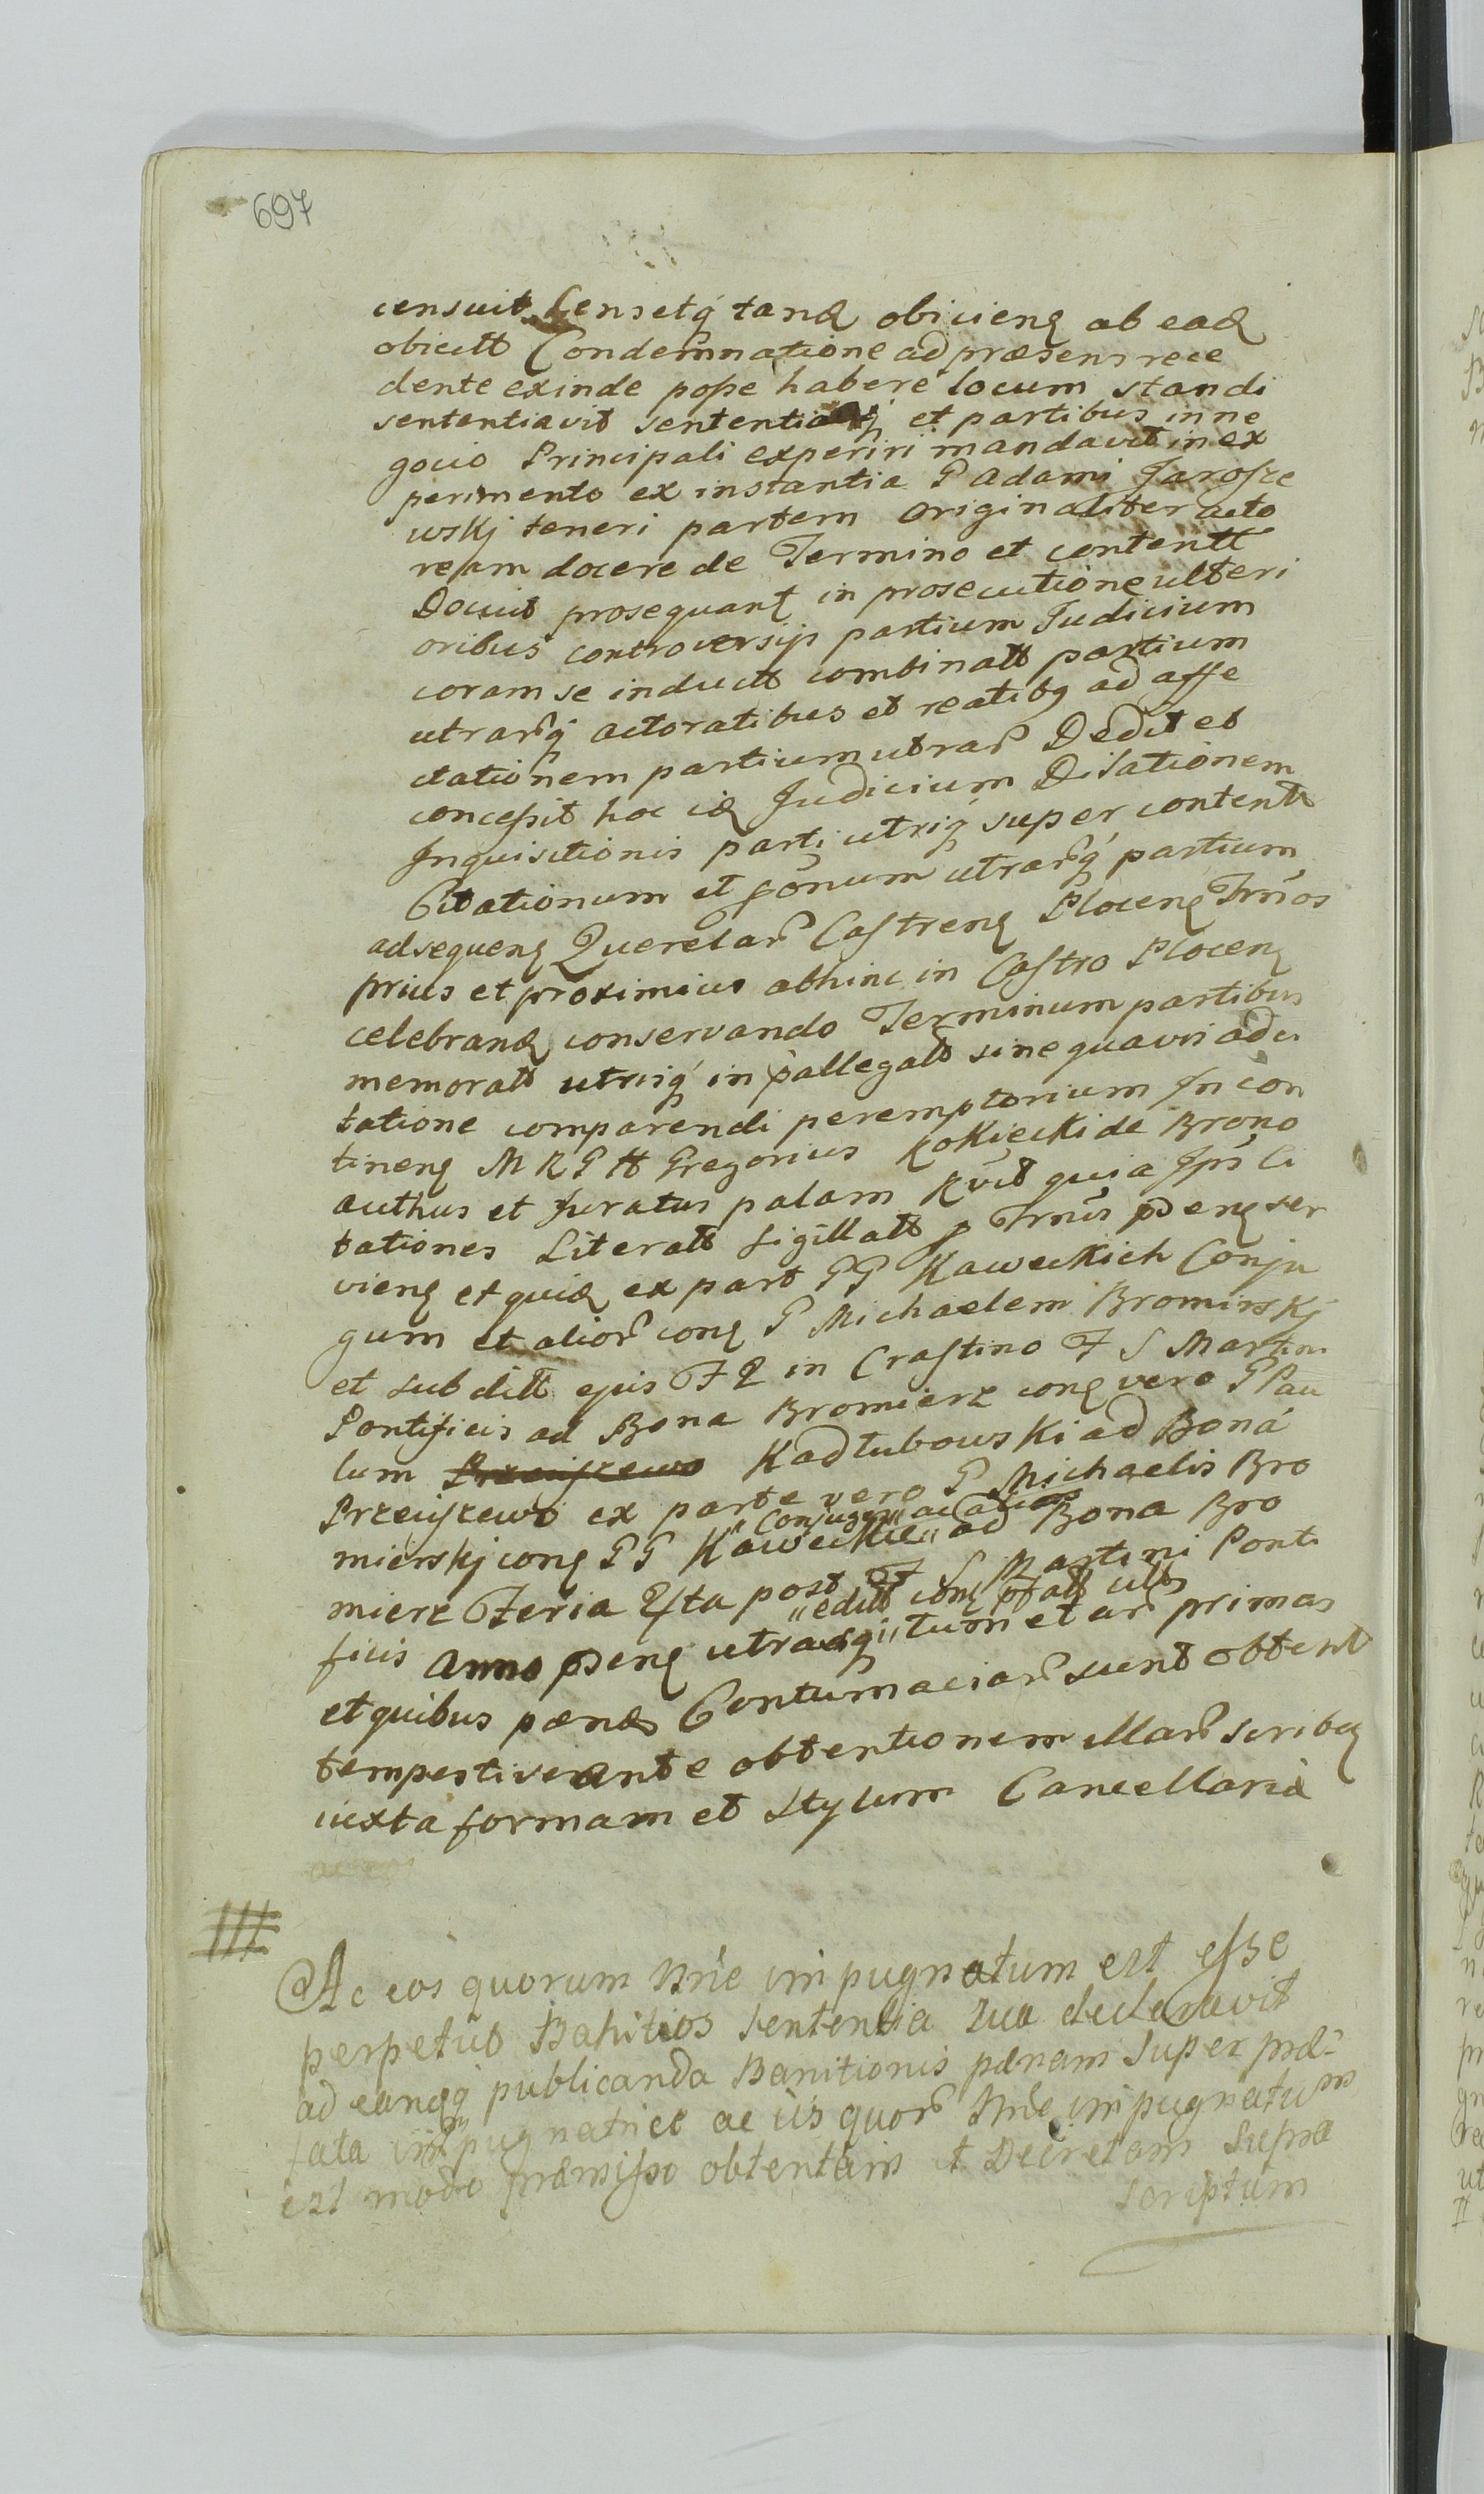 697
censuit Censetq́ tanq obicienq ab eaq
obicitt Condemnatione ad præsens rece
dente exinde poſse habere locum standi
sententiavit sententiatq́ et partibus in ne
gocio Principali experiri mandavit in ex
perimento ex instantia G Adami Jaroſze
wskj teneri partem originaliter acto
ream docere de Termino et contentt
Docuit prosequant in prosecutione ulteri
oribus controversijs partium Judicium
coram se inductt combinatt partium
utrarq́ actoratibus et reatibq ad affe
ctationem partium utrar Dedit et
conceſsit hoc iq Judicium Dilationem
Inquisitionis parti utriq́ super contentt
Citationum et ꝑonum utrarq́ partium
ad sequenq Querelar Caſtrenq Plocenq Trm̃os
prius et proximius abhinc in Caſtro Plocenq
celebranq conservando Terminum partibus
memoratt utriiq́ in p̃allegatt sine quavis adci
tatione comparendi peremptorium In con
tinenq M R G H Gregorius Rokicki de Brono
authus et Juratus palam Rvit quia Ips̃ Ci
tationes Literatt Sigillatt ꝑ Trm̃is p̃denq ser
vienq et quiq ex part GG Kaweckich Conju
gum et alior conq G Michaelem Bromirskj
et subditt ejus F 2 in Craſtino F S Martini
Pontificis ad Bona Bromierz conq vero G Pau
lum Przeciſzewo Kadłubowski ad Bona
Przeciſzewo ex parte vero G Michaelis Bro
"Conjuges" ac alios
mierskj conq GG Kaweckie ad Bona Bro
mierz Feria 4ta post F S Martini Ponti
"editt conq p̃fatt citt
ficis Anno p̃denq utrasq́ tum et ar primas
et quibus pænas Contumaciar sunt obtentt
tempestive ante obtentionem illar scribq
iuxta formam et stylum Cancellaria
Ac eos quorum Nn̄e impugnatum est eſse
perpetuo Banitos Sententia sua declaravit
ad eanqq́ publicanda Banitionis pænam super præ-
fata impugnatrice ac iis quor Nn̄e impugnatum
est modo præmiſso obtentam et Decretam Supra
scriptum